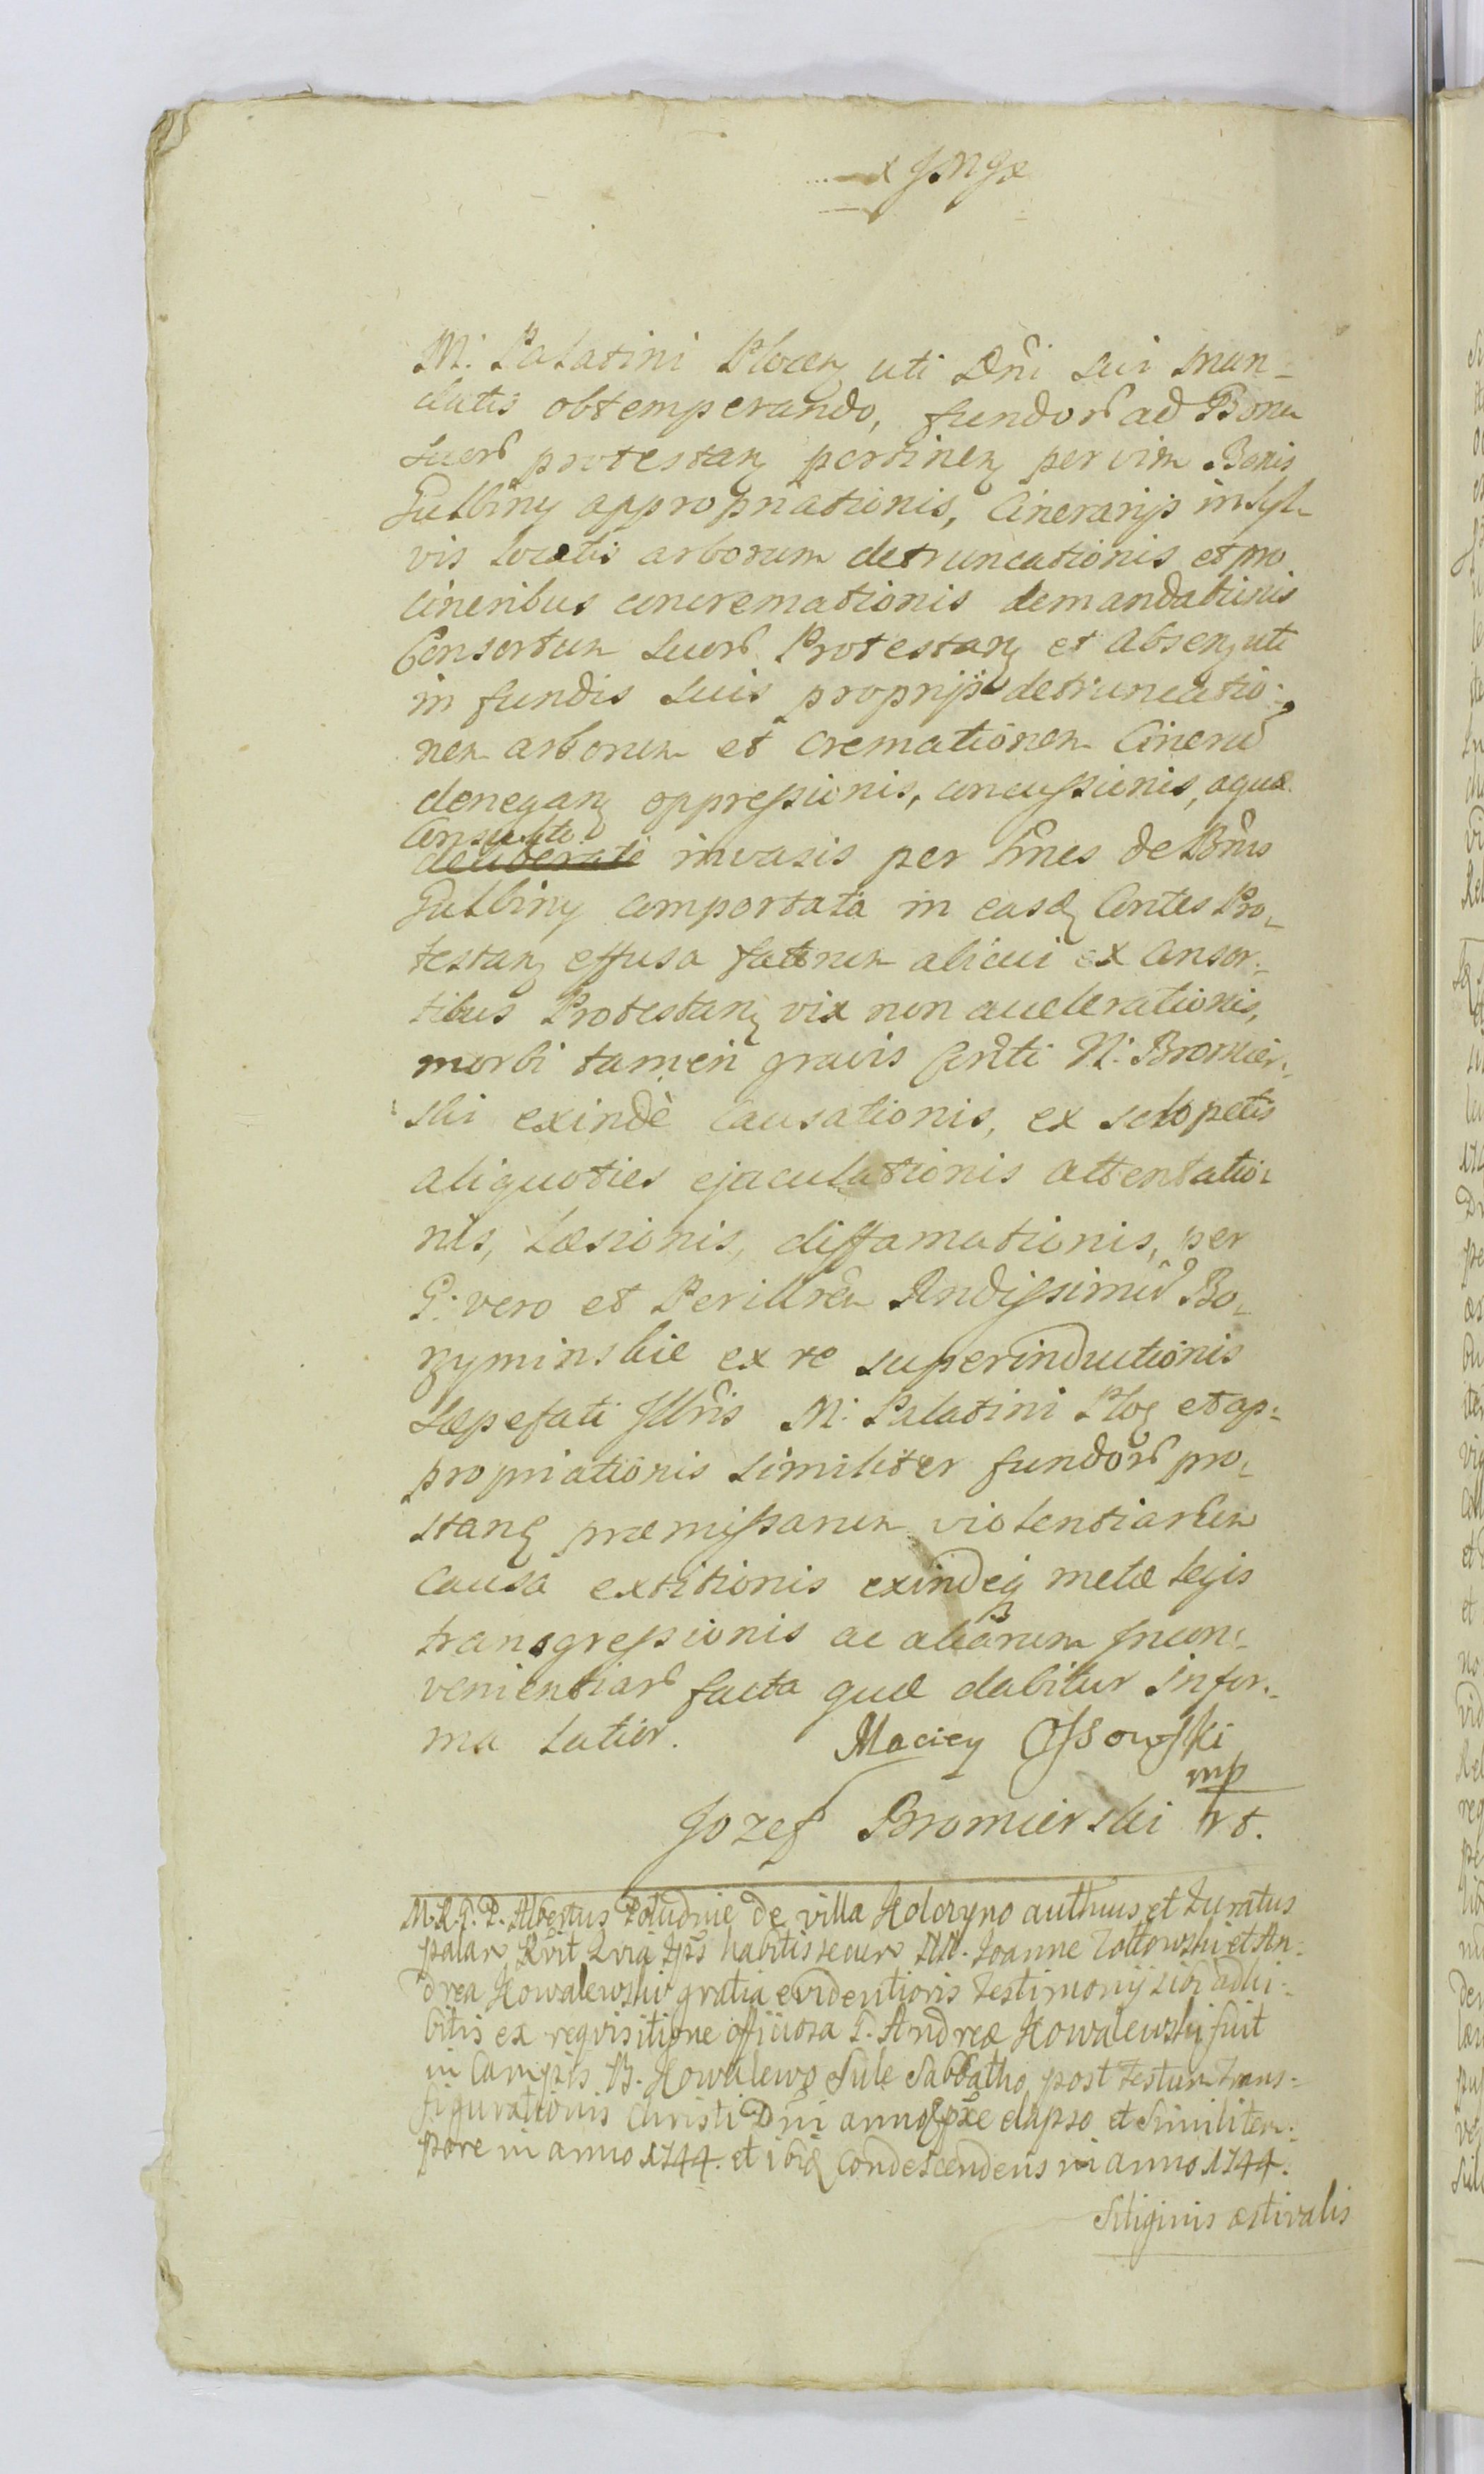 M: Palatini Plocen uti Dni sui man-
datis obtemperando, fundor ad Bona
suor protestan pertinen per vim Bonis
Gulbiny appropriationis, Cinerarijs in syl-
vis locatis arborum detruncationis et pro
cineribus concremationis demandationis
Consortum suor Protestan et absen uti
in fundis suis proprijs detruncatio-
nem arborum et cremationem Cineru
denegan oppressionis, concussionis, aqua
Consulto
deliberate invasis per hnes de Bonis
Gulbiny comportata in easd Contes Pro-
testan effusa fatorum alicui ex Consor-
tibus Protestan vix non accelerationis,
morbi tamen gravis N: Bromier-
ski exindè causationis, ex sclopetis
aliquoties ejaculationis attentatio-
nis, Læsionis, diffamationis, per
G: vero et Perillrem Rndissimu Bo-
rzyminskie ex re superinductionis
sæpefati Illris M: Palatini Plo et ap-
propriationis similiter fundor pro-
stan præmissarum violentiarum
causa extitionis exindeq metæ legis
transgressionis ac aliarum Incon-
venientiar facta quæ dabitur in for-
ma latior. Maciey Ossowski
mp
Jozef Bromierski
M. R. T. P. Albertus Poludnie de villa Holoryno authcus et Juratus
palam Rvit Quia Ips habitis secum NN. Joanne Zoltowski et An-
drea Kowalewski gratia evidentioris testimonij sibi adhi-
bitis ex requisitione officiosa G. Andreæ Kowalewski fuit
in Campis B. Kowalewo Sule Sabbatho post festum Trans-
figurationis Christi Dni anno pxe elapso et simili tem-
pore in anno 1744. et ibid Condescendens in anno 1744.
Siliginis æstivalis